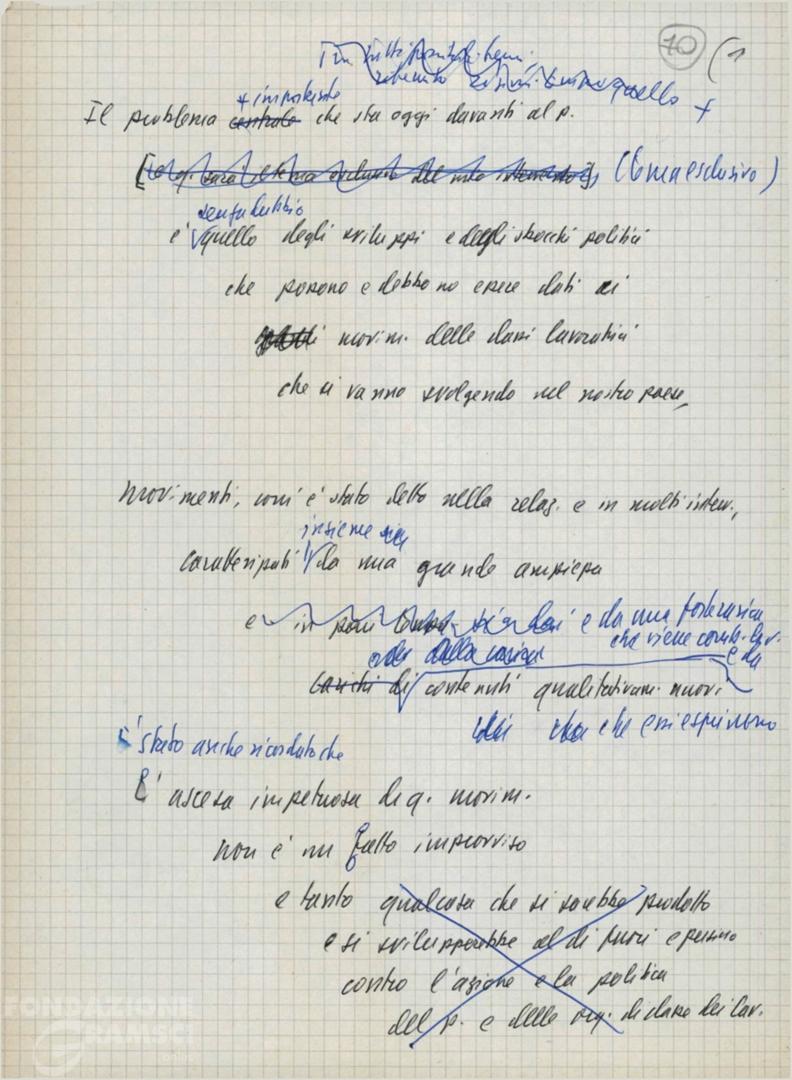 10 (1
In tutti
quello +
+ importante
Il problema centrale che sta oggi davanti al p.
[e q. sarà il tema esclusivo del mio intervento] (tema esclusivo)
senza dubbio
è quello degli sviluppi e degli sbocchi politici
che possono e debbono essere dati ai
movim. delle classi lavoratrici
che si vanno svolgendo nel nostro paese,
movimenti, com'è stato detto nella relaz. e in molti interv.,
insieme
caratterizzati da una grande ampiezza
e in pari tempo e da una forte
che viene
dalla e da
carichi di contenuti qualitativam. nuovi
che essi esprimono
E' stato anche ricordato che
L'ascesa impetuosa di q. movim.
non è un fatto improvviso
e tanto qualcosa che si sarebbe prodotto
e si svilupperebbe al di fuori e persino
contro l'azione e la politica
del p. e delle org. di classe dei lav.
FONDAZIONE
GRAMSCI